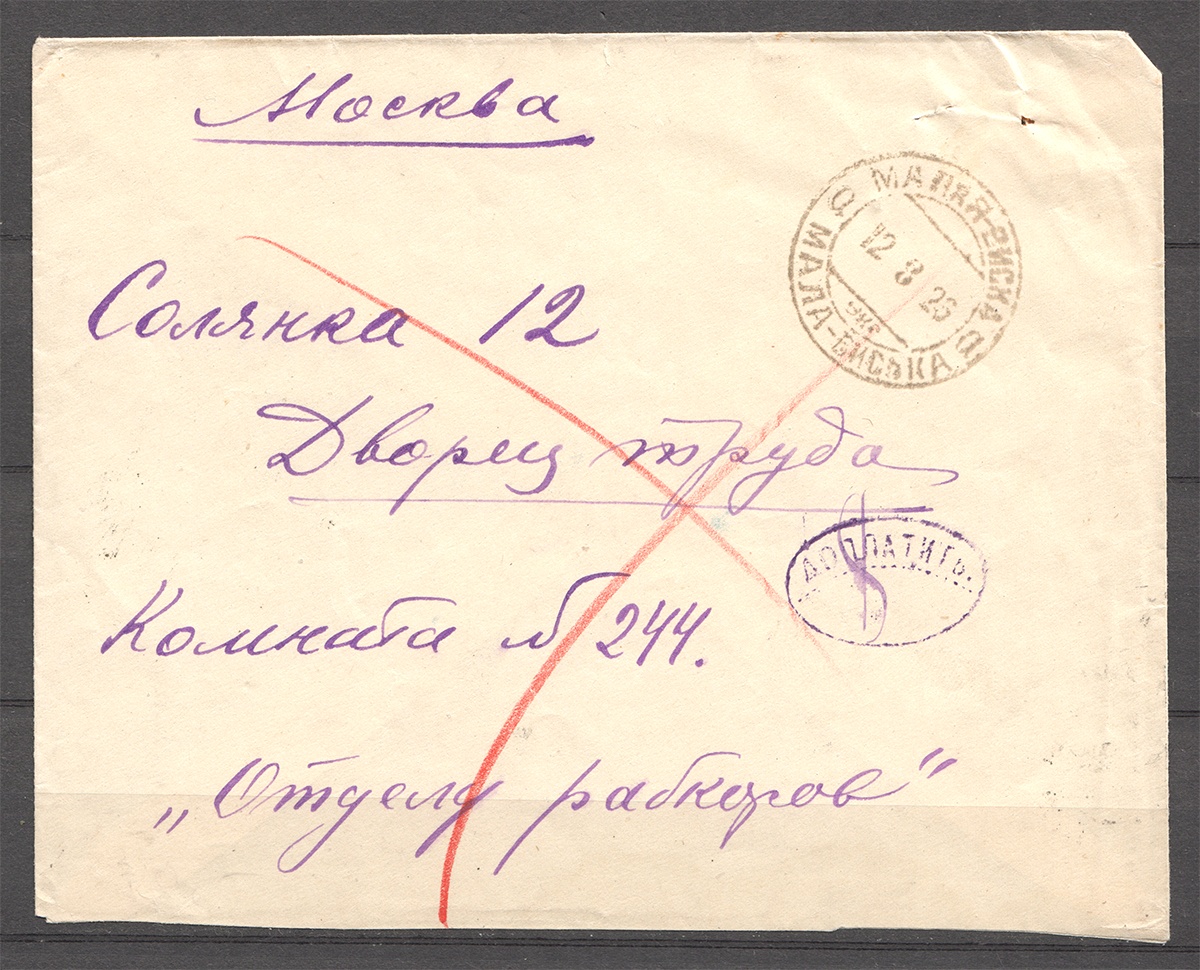 Москва
МАЛАЯ-ВИСКА
12 8 26
МАЛА-ВИСЬКА
Солянка 12
Дворец труда
ДОПЛАТИТЬ.
8
Комната № 244.
„Отделу рабкоров"